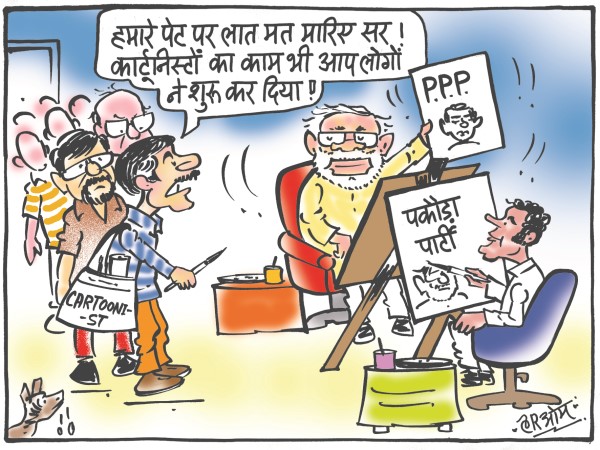 हमारे पेट पर लात मत मारिए सर !
कार्टूनिस्टों का काम भी आप लोगों
ने शुरू कर दिया !
P.P.P.
पकोड़ा
पार्टी
CARTOONI-
ST
!!
हRओम